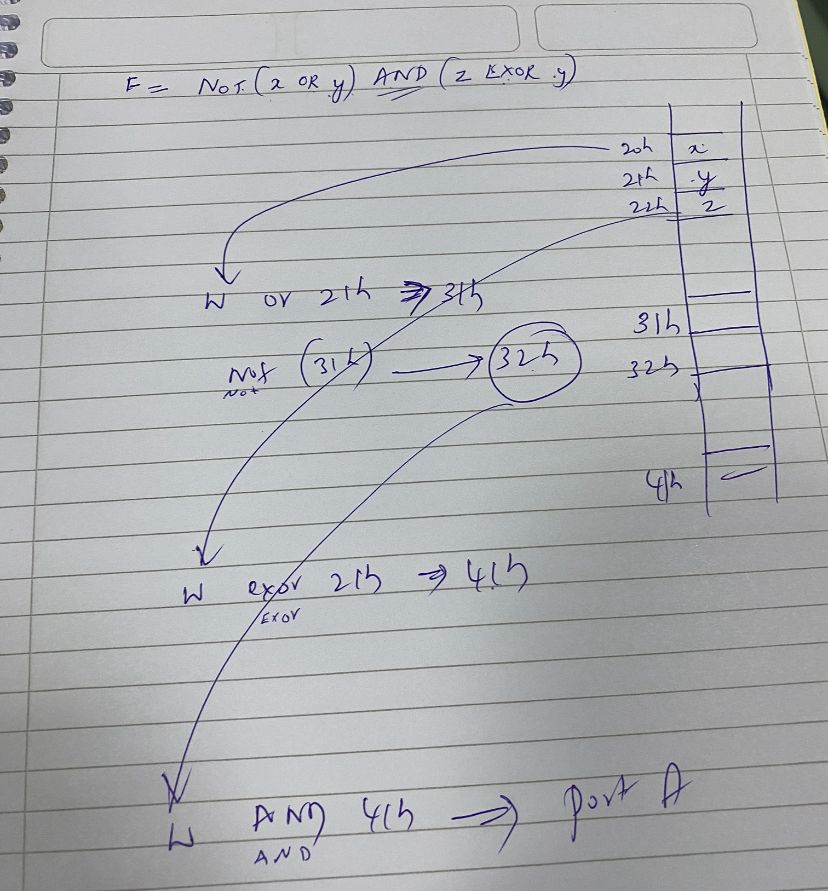 F = NOT (x OR y) AND (z EXOR y)
20h x
21h y
22h z
W or 21h ⇒ 31h
31h
Not (31h) → 32h
Not
32h
41h
W exor 21h ⇒ 41h
Exor
W AND 41h ⇒ Port A
AND